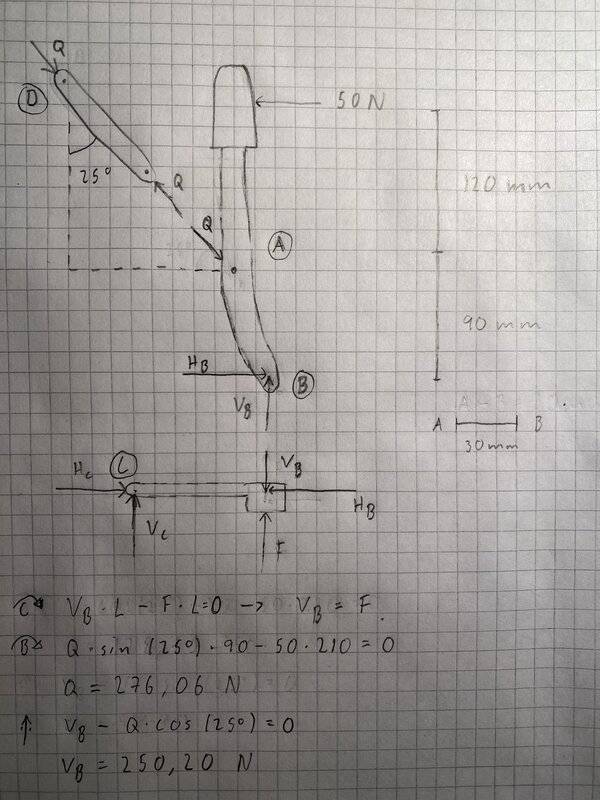 Q
D
50 N
25°
Q
120 mm
Q
A
90 mm
H_B
B
V_B
A B
30 mm
H_C
C
V_B
H_B
V_C
F
C V_B · L - F · L = 0 -> V_B = F.
B Q · sin (25°) · 90 - 50 · 210 = 0
Q = 276,06 N
↑: V_B - Q · cos (25°) = 0
V_B = 250,20 N